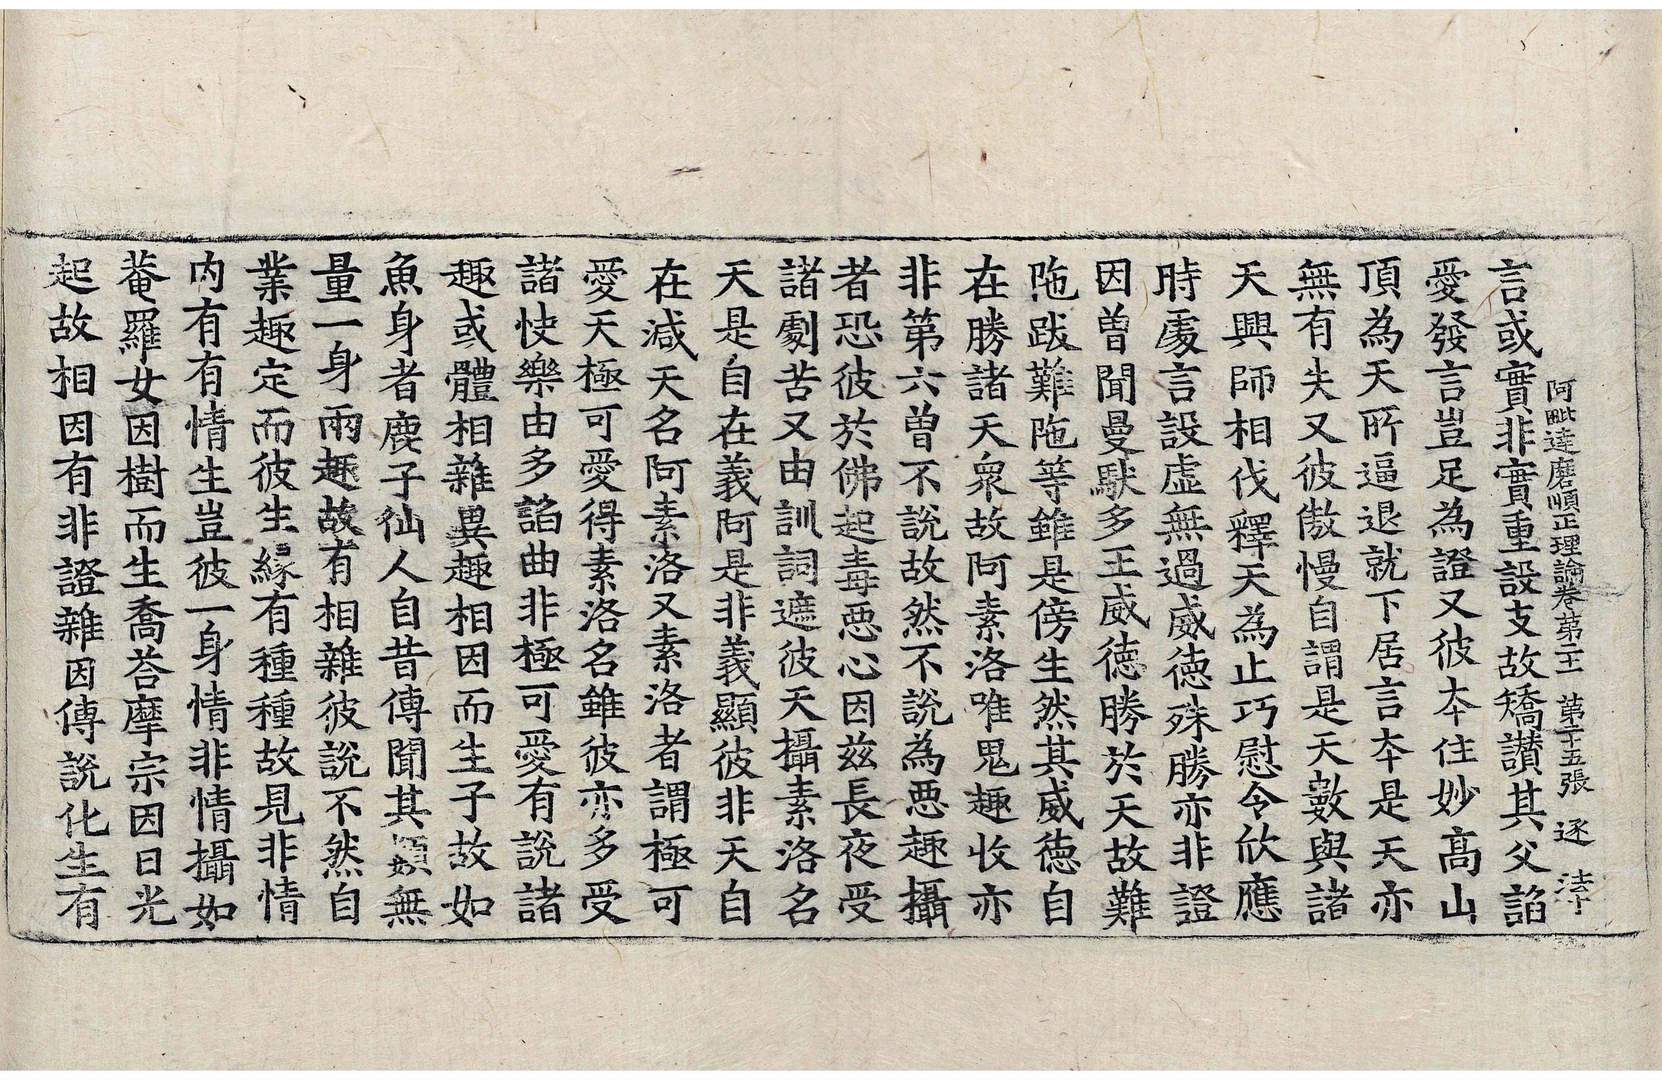 阿毗達磨順正理論卷第二十一 第十五張 逐 法下
言或實非實重設支故矯讃其父諂
愛發言豈足為證又彼夲住妙高山
頂為天所逼退就下居言夲是天亦
無有失又彼傲慢自謂是天數與諸
天興師相伐釋天為止巧慰令欣應
時處言設虛無過威徳殊勝亦非證
因曽聞曼馱多王威徳勝於天故難
陁跋難陁等雖是傍生然其威徳自
在勝諸天衆故阿素洛唯鬼趣收亦
非第六曽不説故然不説為惡趣攝
者恐彼於佛起毒惡心因兹長夜受
諸劇苦又由訓詞遮彼天攝素洛名
天是自在義阿是非義顯彼非天自
在減天名阿素洛又素洛者謂極可
愛天極可愛得素洛名雖彼亦多受
諸快樂由多諂曲非極可愛有説諸
趣或體相雜異趣相因而生子故如
魚身者鹿子仙人自昔傳聞其類無
量一身兩趣故有相雜彼説不然自
業趣定而彼生緣有種種故見非情
内有有情生豈彼一身情非情攝如
菴羅女因樹而生喬荅摩宗因日光
起故相因有非證雜因傳説化生有